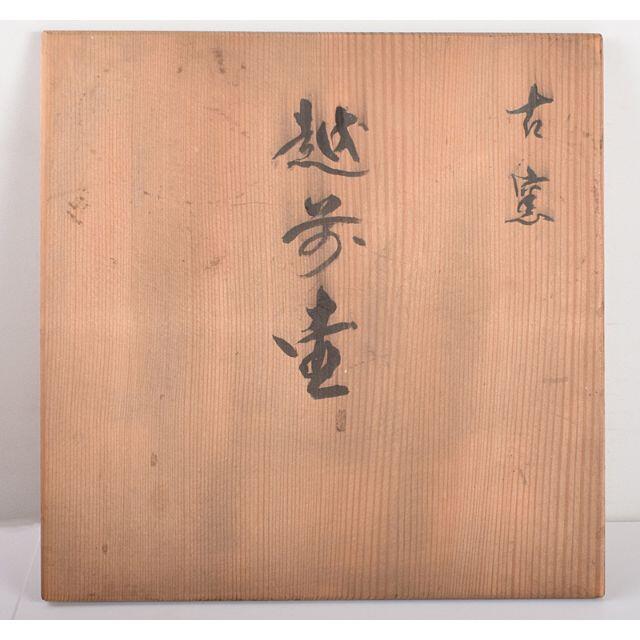 古窯
越前壷